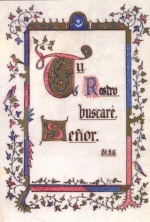 Tu
Rostro
buscaré,
Señor.